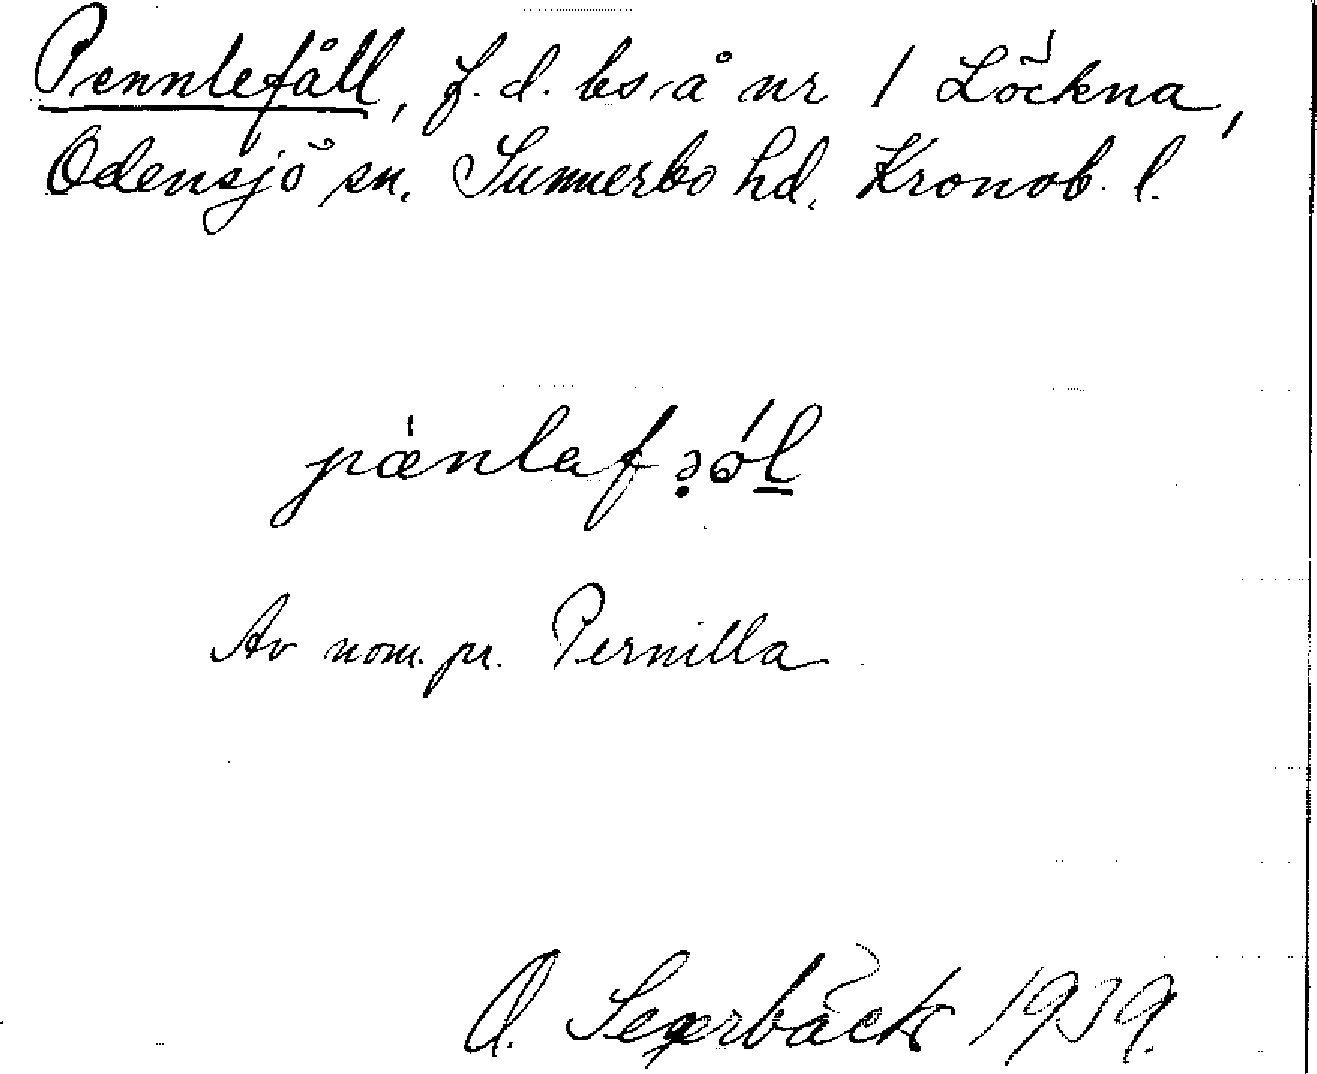 Pennlefåll, f.d. bs. å nr 1 Löckna,
Odensjö sn. Sunnerbo hd. Kronob. l.
Av nom. pr. Pernilla
O. Segerbäck 1939.